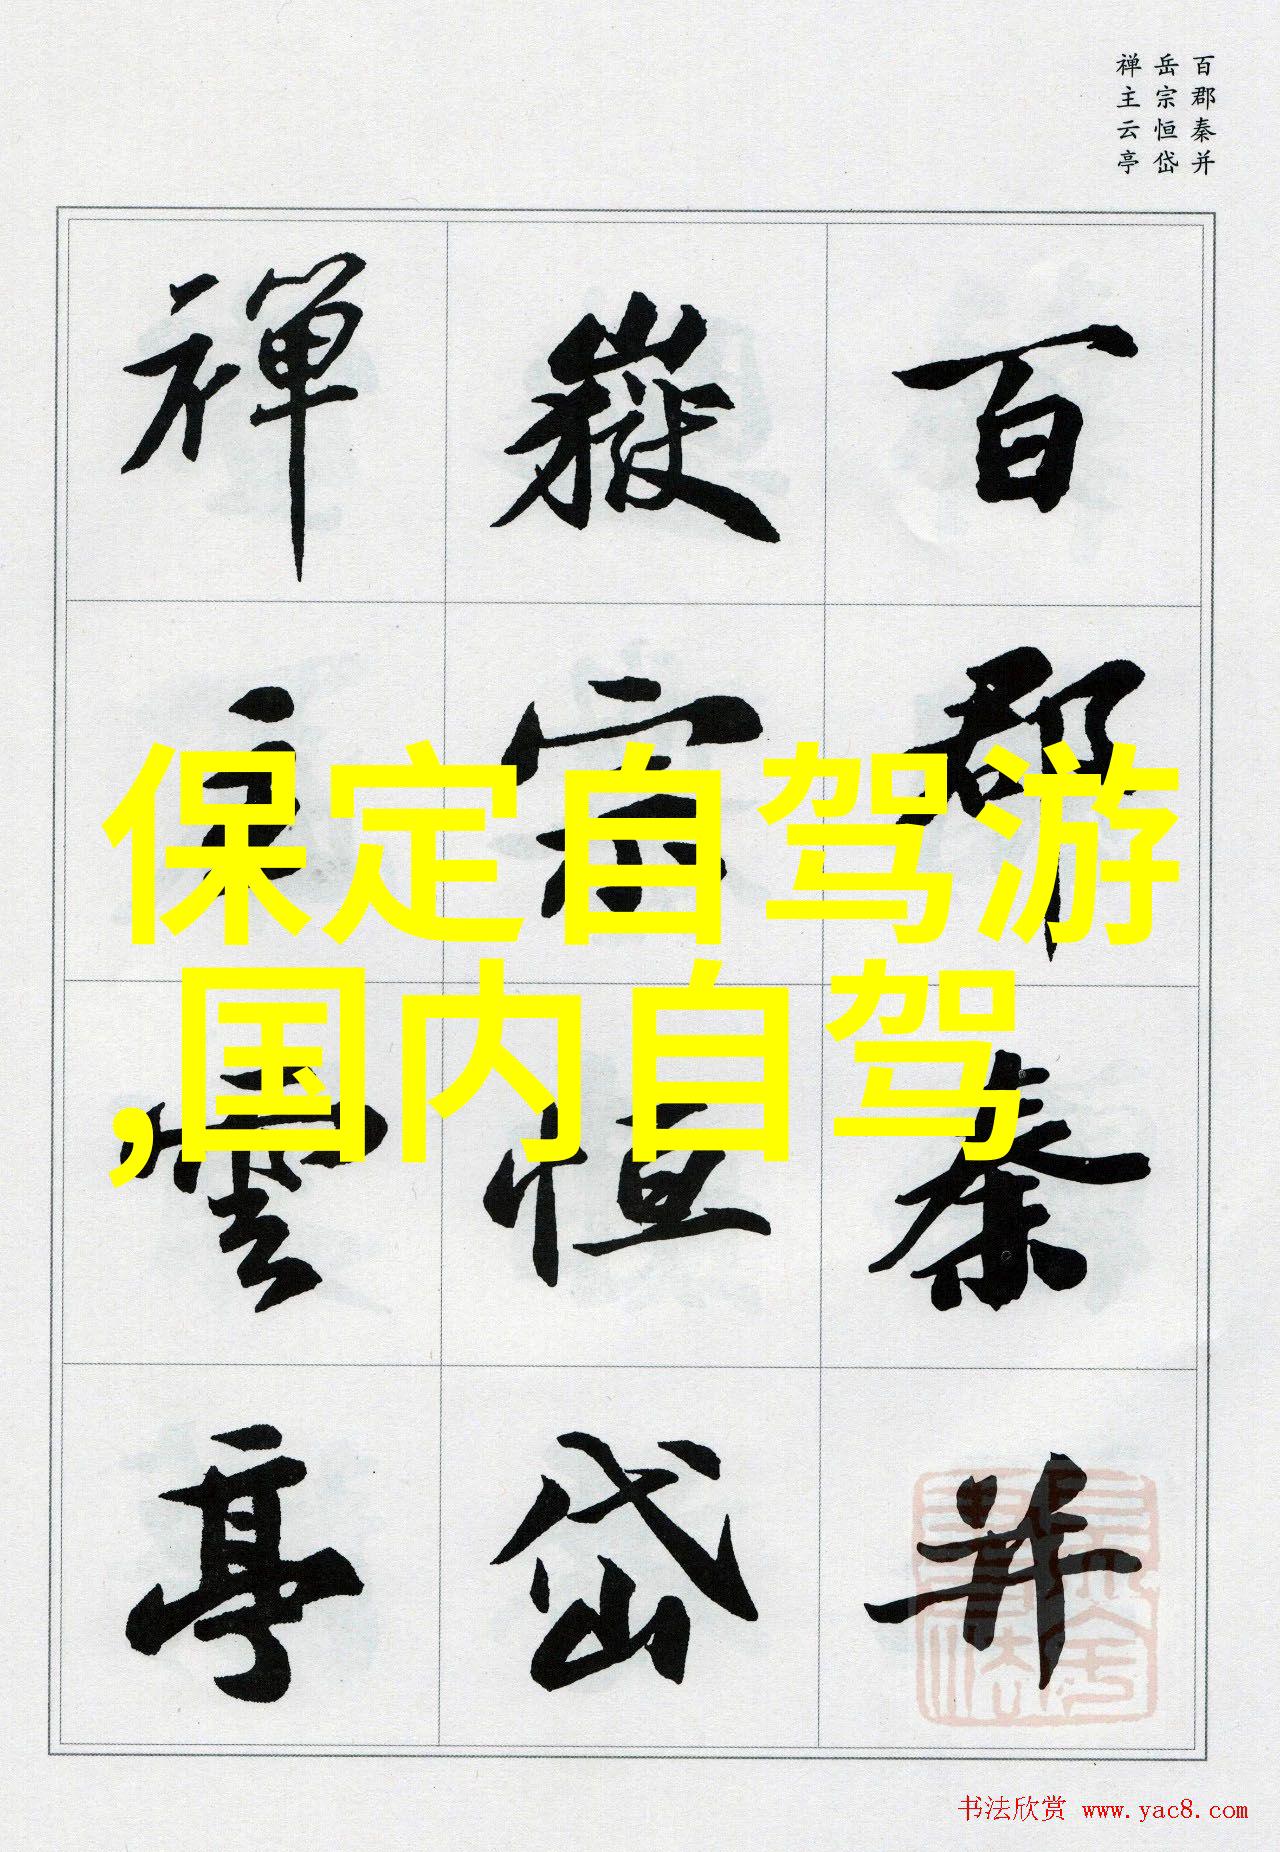 百郡秦并
岳宗恒岱
禅主云亭
百郡秦并
嶽宗恒岱
禅主雲亭
保定自驾游
,国内自驾
书法欣赏 www.yac8.com